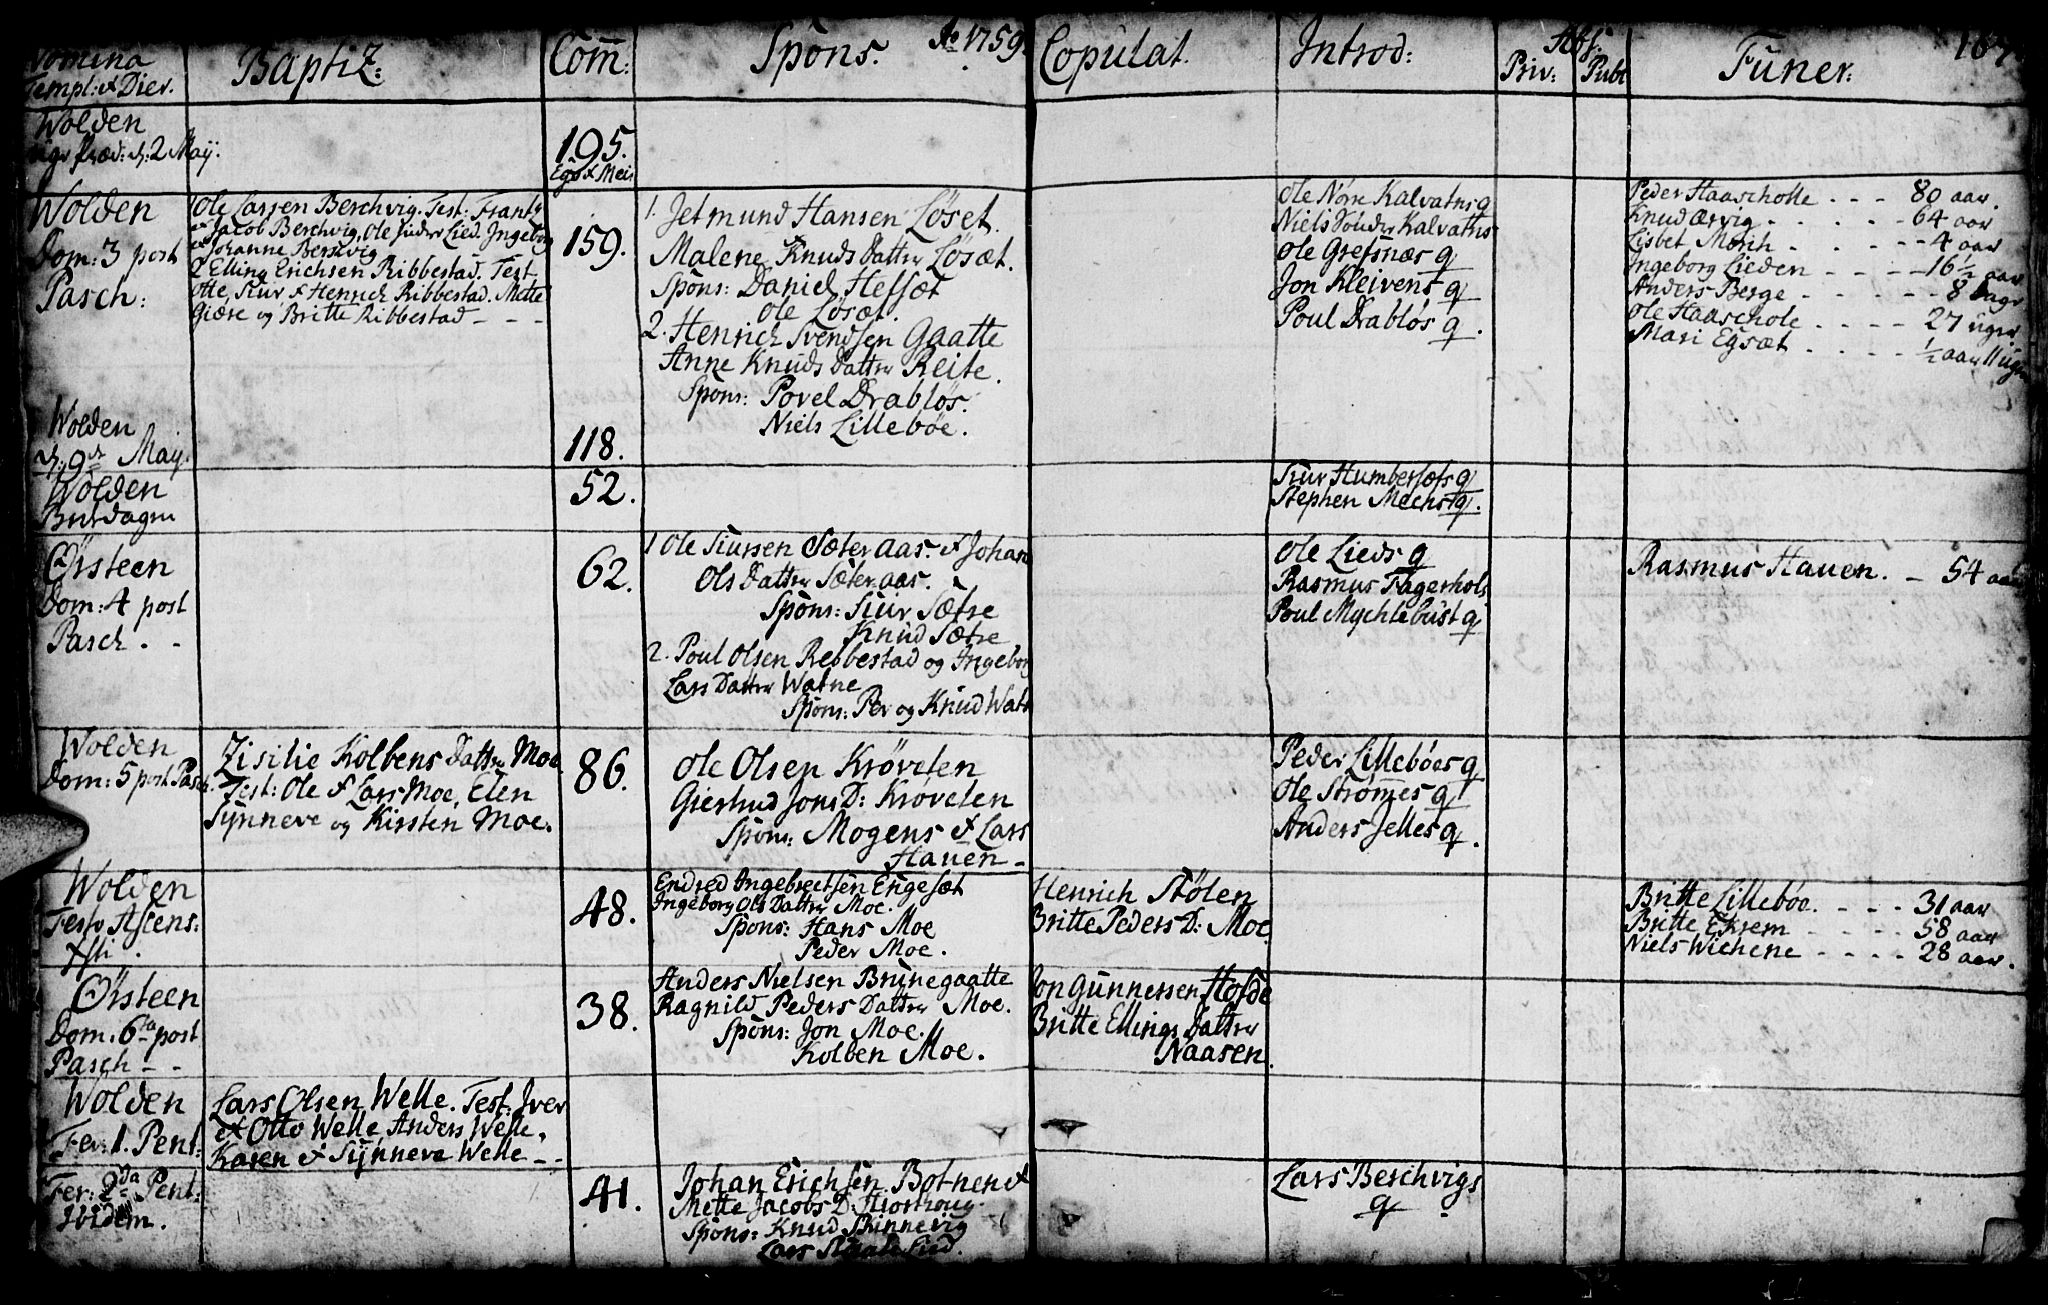 Nomina
Templ: & Dier.
Baptiz:
Com̄:
Spons.
Ao 1759.
Copulat.
Introd:
Abs:
Priv:
Publ
Funer:
167
Wolden
Præd: d: 2 May.
195.
Wolden
Dom: 3 post
Pasch:
1 Ole Larsen Berchvig. Test: Frantz
Jacob Berchvig, Ole Lied. Ingeborg
Johanne Berchvig
2 Elling Erichsen Ribbestad. Test
Otte, Siur & Henrich Ribbestad. Mette
Giære og Britte Ribbestad - - -
159.
1. Jetmund Hansen Løset.
Malene Knuds Datter Løsæt.
Spons: Daniel Hefsæt
Ole Løsæt.
2. Henrich Svendsen Gaatte
Anne Knuds Datter Reite.
Spons: Povel Drabløs.
Niels Lillebøe.
Ole Nørre Kalvatns q
Niels Sønder Kalvatns
Ole Grefsnæs q
Jon Kleivens q
Poul Drabløs q.
Peder Haascholle . . . - 80 aar.
Knud Ærvig - . . . . - 64 aar
Lisbet Morih - . . . - - 4 aar
Ingeborg Lieden - - - - 16½ aar
Anders Berge - . . . . - 8 dage
Ole Haaschole . . . . - 27 uger
Mari Egsæt . . . . - ½ aar 11 uger
Wolden
d. 9de May.
118.
Wolden
Buudagen
52.
Siur Humbersæts q
Stephen Meens q.
Ørsteen
Dom: 4 post
Pasch . -
62.
1 Ole Siursen Sæteraas. & Johan
Ols Datter Sæteraas.
Spons: Siur Sætre
Knud Sætre
2. Poul Olsen Rebbestad og Ingeborg
Lars Datter Watne
Spons: Per og Knud Watn
Ole Lieds q
Rasmus Fagerhols
Poul Mychlebust q
Rasmus Hauen. - 54 aar
Wolden
Dom: 5 post Pasch.
Zisilie Kolbens Datter Moe
Test: Ole & Lars Moe, Elen
Synneve og Kirsten Moe.
86.
Ole Olsen Krøvelen
Giertrud Jons D: Krøvelen
Spons: Mogens & Lars
Hauen -
Peder Lillebøes q
Ole Strømmes q
Anders Jelles q.
Wolden
Festo Ascens:
Xsti.
48.
Endred Ingebrectsen Engesæt
Ingeborg Ols Datter Moe.
Spons: Hans Moe
Peder Moe.
Henrich Stølen
Britte Peders D: Moe.
Britte Lillebøe. - - - 31 aar
Britte Ekrem - - - - 58 aar
Niels Wichene - - - - 28 aar.
Ørsteen
Dom: 6ta post
Pasch - -
38.
Anders Nielsen Brunegaatte
Ragnild Peders Datter Moe.
Spons: Jon Moe.
Kolben Moe.
Jon Gunnersen Hofde
Britte Ellings Datter
Naasen.
Wolden
Fer: 1. Pent:
Lars Olsen Welle. Test: Iver
& Otto Welle, Anders Welle,
Karen & Synneve Welle - -
Fer: 2da Pent:
Ibidem.
41.
Johan Erichsen Botnen &
Mette Jacobs D:
Spons: Knud Brinnevig
Lars
Lars Berchvigs
q